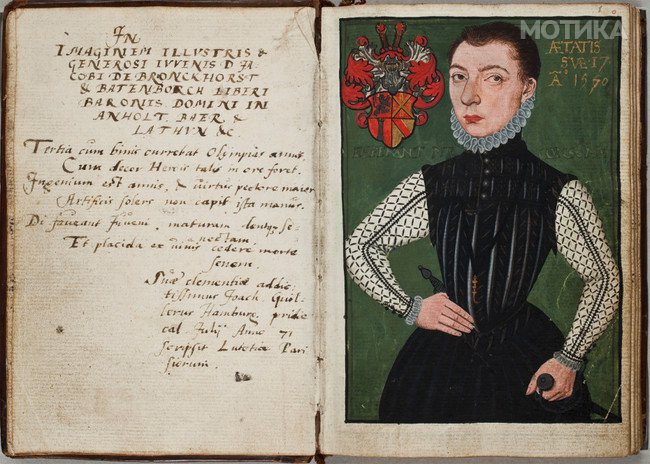 IN
IMAGINEM ILLVSTRIS &
GENEROSI IVVENIS D JA
COBI DE BRONCKHORST
& BATENBORCH LIBERI
BARONIS DOMINI IN
ANHOLT BAER &
LATHVN &c.
Tertia cum binis currebat Olympias annis,
Cum decor Herois talis in ore foret.
Ingenium est annis, & virtus pectore maior
Artificis solers non capit ista manus.
Di faveant Juveni, maturam denique se-
nectam,
Et placida ex vivis cedere morte
senem.
Suae clementiae addic-
tissimus Joach. Quil-
lerus Hamburg. pridie
cal. Julij Anno 71
scripsit Lutetiae Pari
siorum.
МОТИКА
ÆTATIS
SVÆ 17
Aº 1570